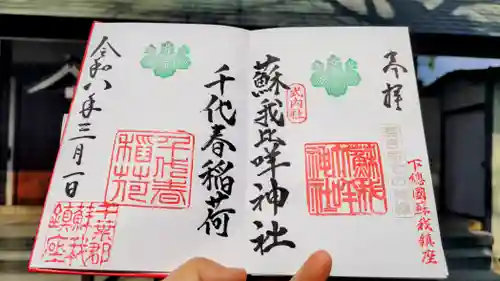 奉拝
下總國蘇我鎮座
式内社
蘇我比咩神社
蘇我比咩神社
千代春稲荷
千代春稲荷
令和八年三月一日
千葉郡蘇我鎮座